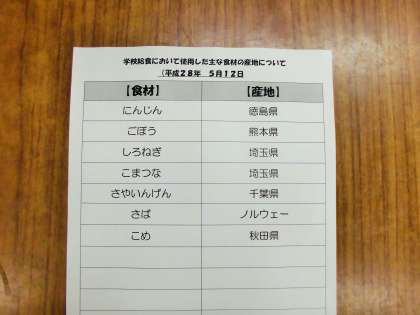 学校給食において使用した主な食材の産地について
（平成28年　5月12日
【食材】　【産地】
にんじん　徳島県
ごぼう　熊本県
しろねぎ　埼玉県
こまつな　埼玉県
さやいんげん　千葉県
さば　ノルウェー
こめ　秋田県